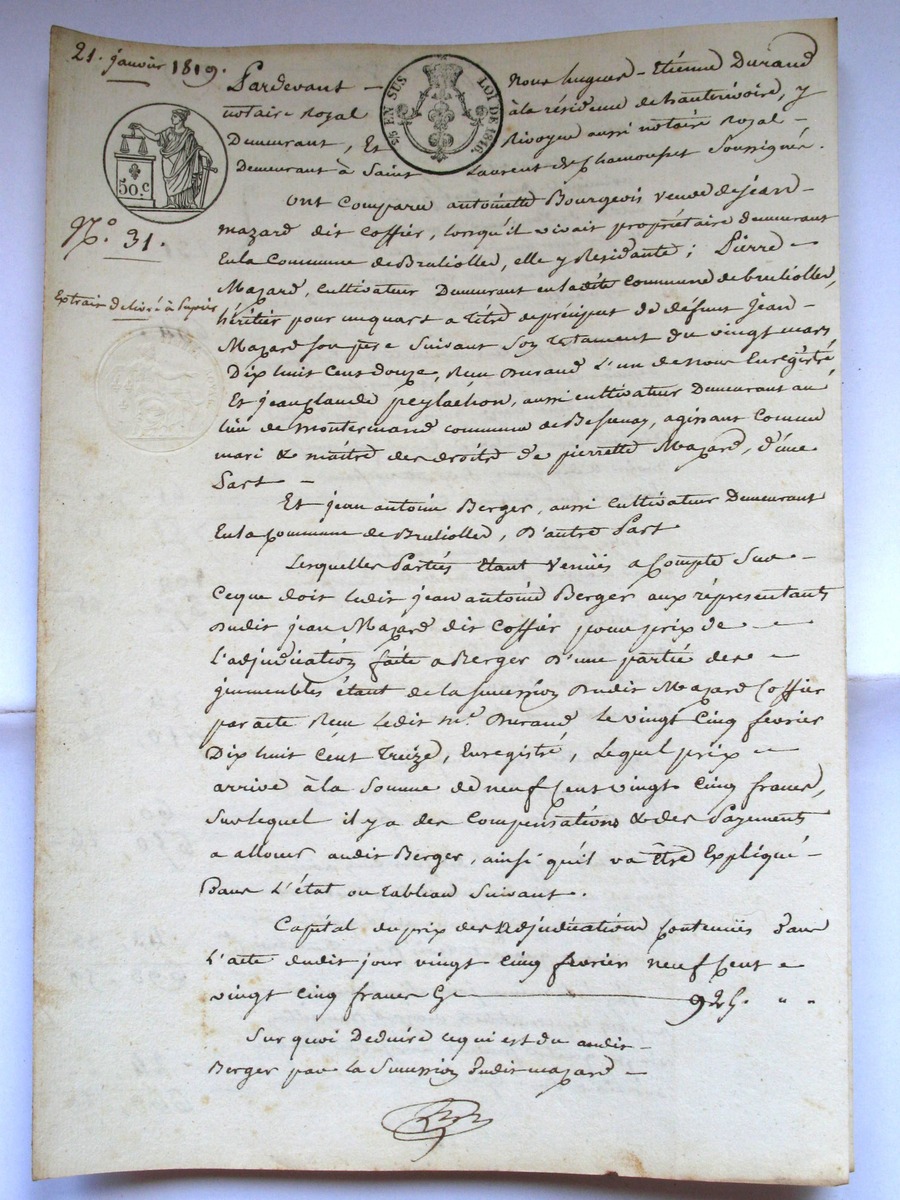 21. janvier 1819.
25 EN SUS LOI DE 1816.
50.c
N.° 31.
Extrait délivré à papier
Pardevant Nous hugues-Etienne Durand
notaire Royal à la résidence de hauterivoire, y
Demeurant, Et Rivoyre aussi notaire Royal
Demeurant à Saint Laurent de Chamousset Soussignés.
ont Comparu antoinette Bourgeois veuve de jean
mazard dit Coffier, lorsqu'il vivait propriétaire demeurant
En la Commune de Brulliolles, elle y Residante ; Pierre
Mazard, Cultivateur Demeurant en ladite Commune de brulliolles,
héritier pour un quart a titre de préciput de défunt jean
Mazard son père Suivant Son testament du vingt mars
Dix huit Cent douze, Reçu Durand L'un de nous Enregistré
Et jean claude peylachon, aussi cultivateur Demeurant au
lieu de montermand commune de Bessenay, agissant Comme
mari & maître des droits de pierrette Mazard, d'une
Part
Et jean antoine Berger, aussi Cultivateur Demeurant
En la Commune de Brulliolles, D'autre Part
Lesquelles Parties étant Venües a Compte Sur
Ceque doit ledit jean antoine Berger aux réprésentants
Dudit jean Mazard dit Coffier pour prix de
L'adjudication faite a Berger D'une partie des
immeubles étant de la succession Dudit Mazard Coffier
par acte Reçu ledit m.e Durand le vingt Cinq février
Dix huit Cent Treize, Enregistré, Lequel prix
arrive à la Somme de neuf Cent vingt Cinq francs,
Sur lequel il y a des Compensations & des Payements
a allouer audit Berger, ainsi qu'il va être Expliqué
Dans L'état ou tableau Suivant.
Capital du prix des adjudications Contenües Dans
L'acte dudit jour vingt Cinq février neuf Cent
vingt Cinq francs Cy 925. " "
Sur quoi Déduire ce qui est du audit
Berger par la Succession Dudit mazard